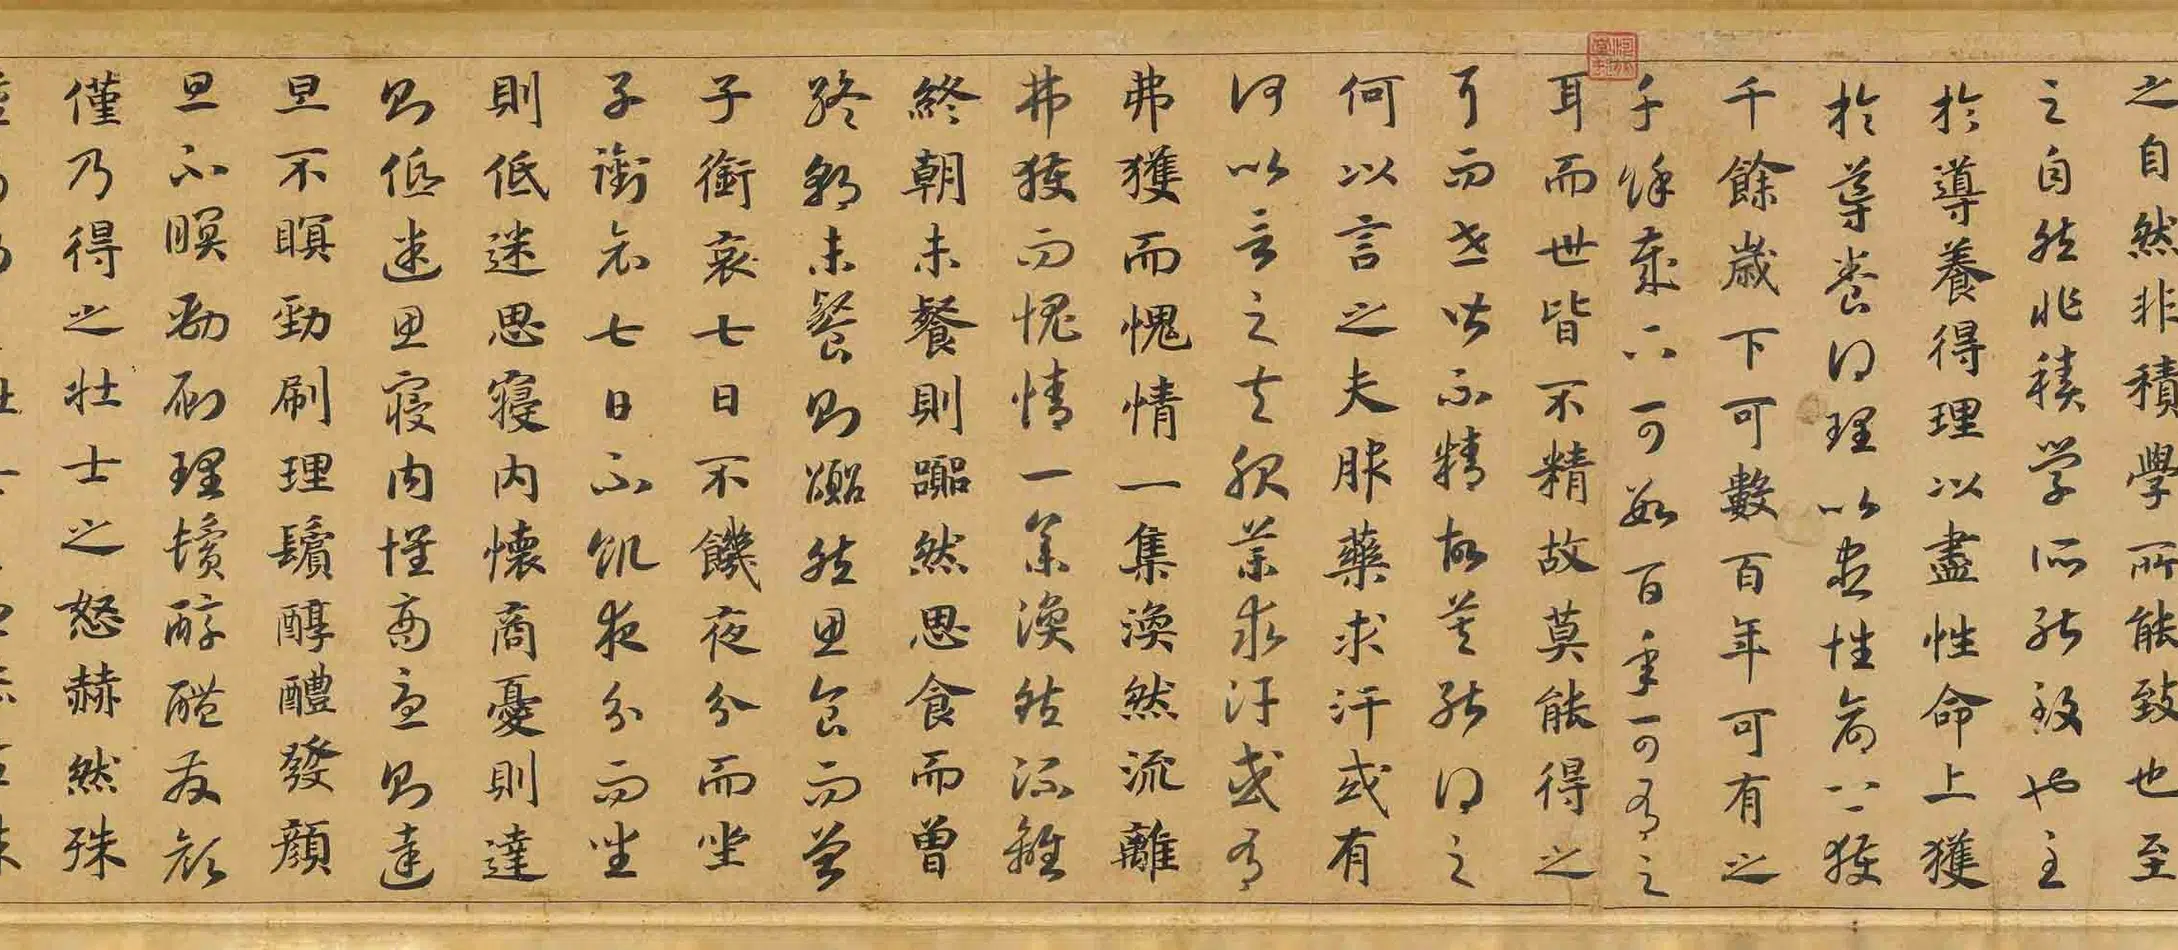 之自然非積學所能致也至
之自然非積學所能致也至
於導養得理以盡性命上獲
於導養得理以盡性命上獲
千餘歲下可數百年可有之
千餘歲下可數百年可有之
耳而世皆不精故莫能得之
耳而世皆不精故莫能得之
何以言之夫服藥求汗或有
何以言之夫服藥求汗或有
弗獲而愧情一集渙然流離
弗獲而愧情一集渙然流離
終朝未餐則囂然思食而曾
終朝未餐則囂然思食而曾
子銜哀七日不饑夜分而坐
子銜哀七日不飢夜分而坐
則低迷思寢內懷商憂則達
則低迷思寢內懷商憂則達
旦不瞑勁刷理鬢醇醴發顏
旦不瞑勁刷理鬢醇醴發顏
僅乃得之壯士之怒赫然殊